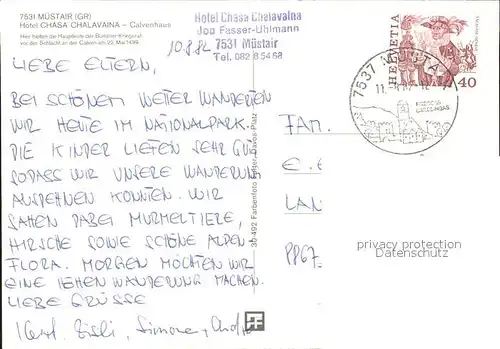 7531 MÜSTAIR (GR)
Hotel CHASA CHALAVAINA – Calvenhaus
Hier hielten die Hauptleute der Bündner Kriegsrat
vor der Schlacht an der Calven am 22. Mai 1499
Hotel Chasa Chalavaina
Jon Fasser-Uhlmann
7531 Müstair
Tel. 082 8 54 68
10.8.82
LIEBE ELTERN,
BEI SCHÖNEM WETTER WANDERTEN
WIR HEUTE IM NATIONALPARK.
DIE KINDER LIEFEN SEHR GUT
SODASS WIR UNSERE WANDERUNG
AUSDEHNEN KONNTEN. WIR
SAHEN DABEI MURMELTIERE,
HIRSCHE SOWIE SCHÖNE ALPEN-
FLORA. MORGEN MÖCHTEN WIR
EINE WANDERUNG MACHEN.
LIEBE GRÜSSE
Simone
30-492 Farbenfoto Davos-Platz
HELVETIA
40
7537 MÜSTAIR
FAM.
E.
LAN
PP67
privacy protection
Datenschutz